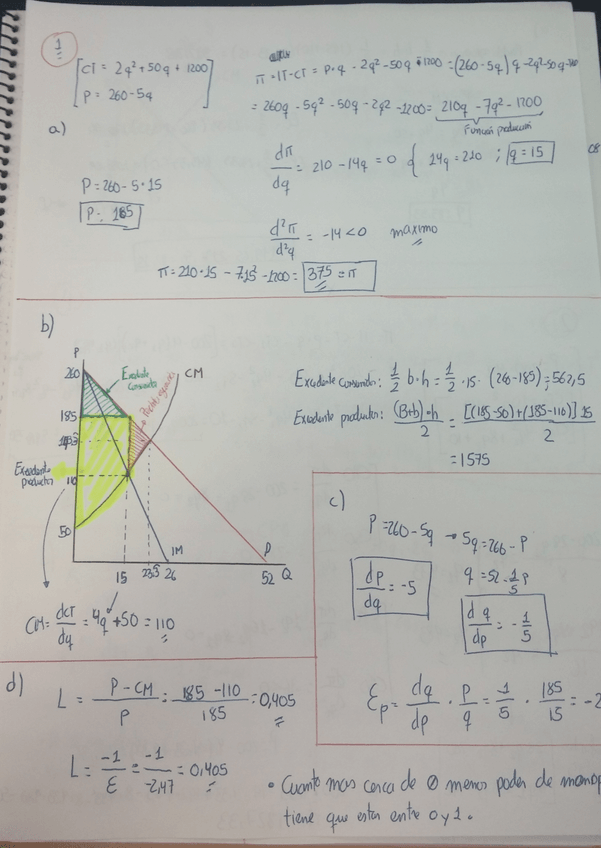 1
CT = 2q² + 50q + 1200
P = 260 - 5q
π = IT - CT = P·q - 2q² - 50q - 1200 = (260 - 5q) q - 2q² - 50q - 1200
= 260q - 5q² - 50q - 2q² - 1200 = 210q - 7q² - 1200
Función producción
a)
dπ/dq = 210 - 14q = 0 { 14q = 210 ; q = 15
P = 260 - 5·15
P = 185
d²π/d²q = -14 < 0 maximo
π = 210·15 - 7·15² - 1200 = 375 = π
b)
P
260
Exedente
Consumidor
CM
185
Exedente
productor
110
50
15
26
IM
P
52
Q
CM = dCT/dq = 4q + 50 = 110
Exedente consumidor: 1/2 b·h = 1/2 · 15 · (260 - 185) = 562,5
Exedente productor: (B+b)·h/2 = [(185 - 50) + (185 - 110)] 15/2
= 1575
c)
P = 260 - 5q → 5q = 260 - P
q = 52 - 1/5 P
dp/dq = -5
dq/dp = -1/5
Ep = dq/dp · p/q = 1/5 · 185/15 = -2
d)
L = P - CM/P = 185 - 110/185 = 0,405
L = -1/ε = -1/-2,47 = 0,405
• Cuanto mas cerca de 0 menos poder de monop
tiene que estar entre 0 y 1.